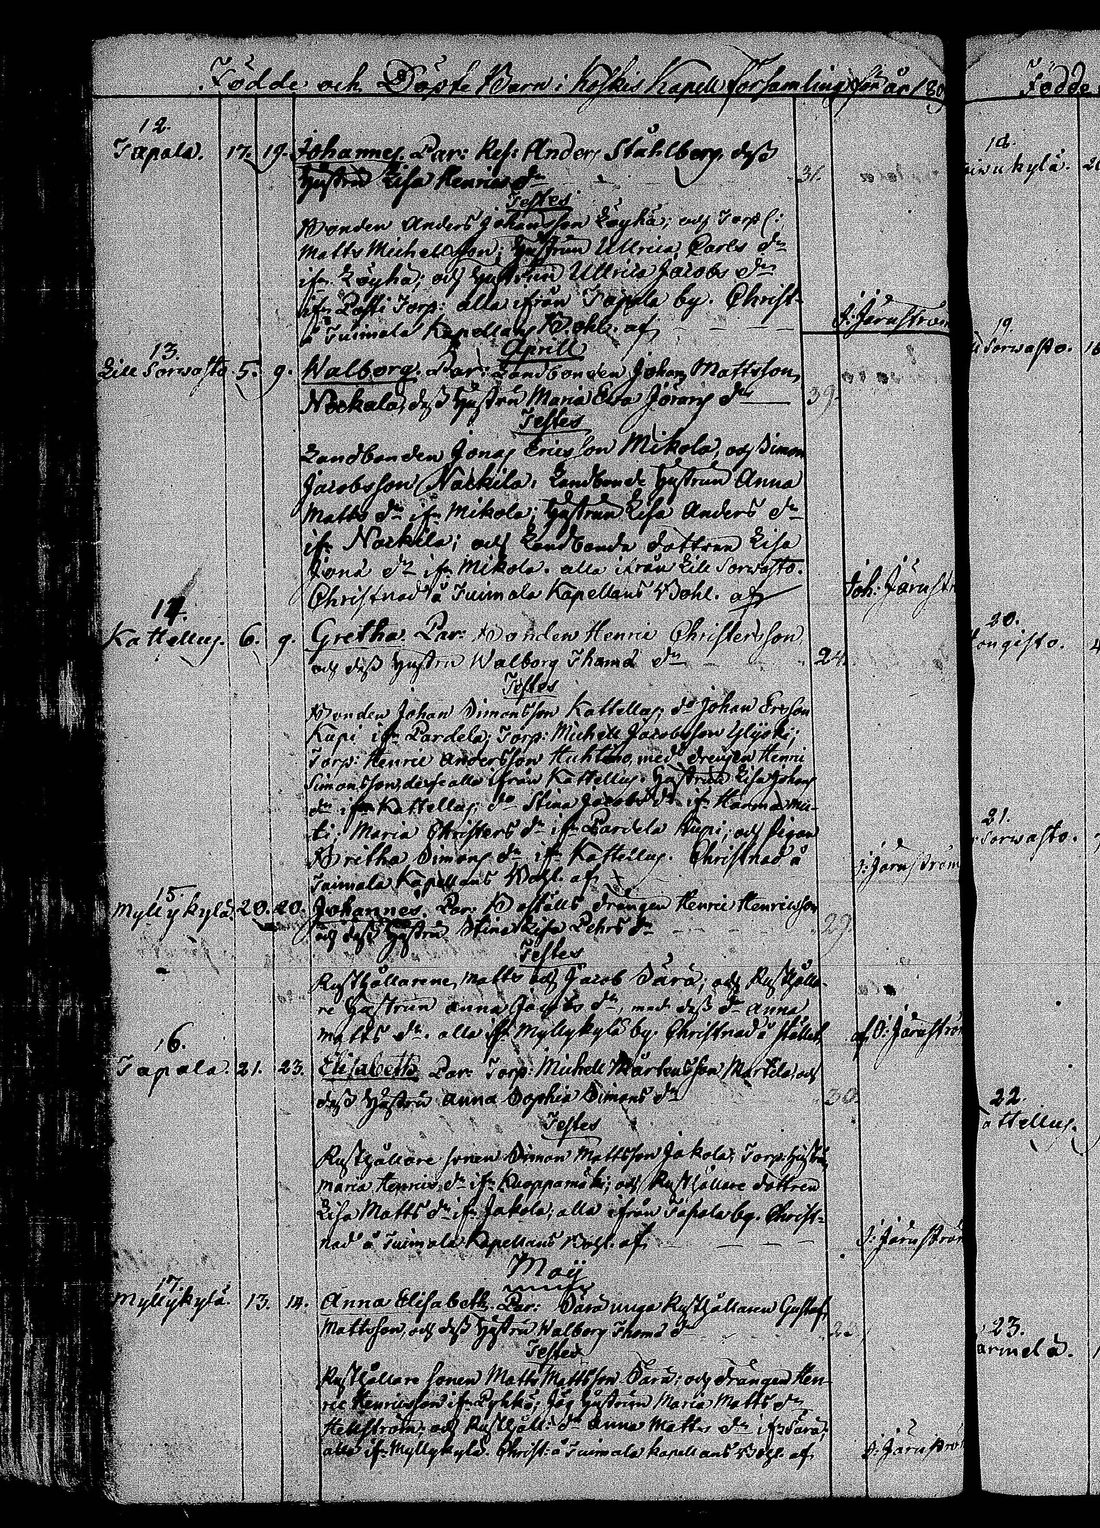 Födde och Döpte Barn i Koskis Kapell Församling för år 18
12.
Tapala. 17. 19. Johannes. Par: Res: Anders Ståhlberg, dess
Hustru Lisa Henrics dr 31.
Testes
Bonden Anders Johansson Löyhä; och Torp:
Matts Michellsson; Hustrun Ullrica Carls dr
ifr. Löyhä; och Hustrun Ullrica Jacobs dr
ifr. Torp: alla ifrån Tapala by. Christ-
å Tuimala Kapellans Bohl. af J: Järnström
Aprill
13.
Lill Sorvasto 5. 9. Walborg. Par: Landbonden Johan Mattsson
Nackila, dess Hustru Maria Lisa Jörans dr 39.
Testes
Landbonden Jonas Ericsson Mikola, och Simon
Jacobsson Nackila. Landbonde Hustrun Anna
Matts dr ifr. Mikola; Hustrun Lisa Anders dr
ifr. Nackila; och Landbonde dottren Lisa
Jona dr ifr. Mikola. alla ifrån Lill Sorvasto.
Christnad å Tuimala Kapellans Bohl. af Joh: Järnstr
14.
Kattelus. 6. 9. Gretha. Par: Bonden Henric Christersson
och dess Hustru Walborg Thoma dr 24.
Testes
Bonden Johan Simonsson Kattelus; do Johan Ersson
Kupi ifr. Pardela; Torp: Michell Jacobsson
Torp: Henric Andersson Huhtmo, med drengen Henric
Simonsson, desse alla ifrån Kattelus. Hustrun Lisa Johans
dr ifrn Kattelus; do Stina Jacobs dr ifr.
Maria Christers dr ifr. Pardela Kupi; och Pigan
Bretha Simons dr ifr. Kattelus. Christnad å
Tuimala Kapellans Bohl. af J: Järnström
15.
Myllykylä. 20. 20. Johannes. Par: Boställs drängen Henric Henricsson
och dess Hustru Stina Lisa Pehrs dr 29.
Testes
Rusthållarene, Matts och Jacob Särä; och Rusthålla-
re Hustrun Anna Jacobs dr, med dess dr Anna
Matts dr. alla ifr. Myllykylä by. Christnad å stället
af J: Järnströ
16.
Tapala. 21. 23. Elisabeth. Par: Torp: Michell Mårtensson Martila, och
dess Hustru Anna Sophia Simons dr 30.
Testes
Rusthållare sonen Simon Mattsson Jakola; Torp: Hustru
Maria Henrics dr ifr. Kuoppamäki; och Rusthållare dottren
Lisa Matts dr ifr. Jakola; alla ifrån Tapala by. Christ-
nad å Tuimala Kapellans Bohl. af J: Järnström
Maij
17.
Myllykylä. 13. 14. Anna Elisabeth. Par: Särä unga Rusthållaren Gustaf
Mattsson, och dess Hustru Walborg Thoma dr 22
Testes
Rusthållare sonen Matts Mattsson Särä; och drängen Hen-
ric Henricsson ifr. Pyhkö; Hustrun Maria Matts dr
Hellström; och Rusthåll: dr Anna Matts dr ifr. Särä;
alla ifr. Myllykylä. Christ: å Tuimala Kapellans Bohl. af J: Järnströ
Födde
18.
19.
Sorvasto.
20.
21.
Sorvasto.
22.
attellus.
23.